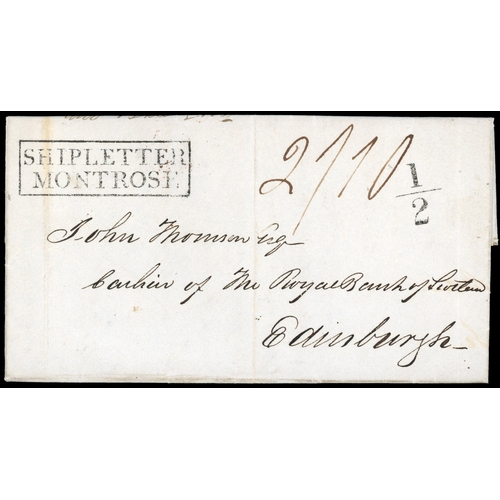 SHIPLETTER
MONTROSE
2/10
1/2
John Thomson Esq
Cashier of The Royal Bank of Scotland
Edinburgh